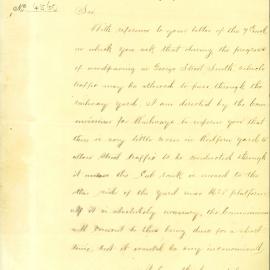 Sir
With reference to your letter of the 7th inst.
in which you ask that during the progress
of woodpaving in George Street South vehicle
traffic may be allowed to pass through the
railway yard, I am directed by the Com-
missioners for Railways to inform you that
there is very little room in Redfern yard to
allow Street traffic to be conducted through
it unless the Cab rank is moved to the
other side of the yard near platform.
If it is absolutely necessary, the Commissioners
will consent to this being done for a short
time, but it would be very inconvenient.